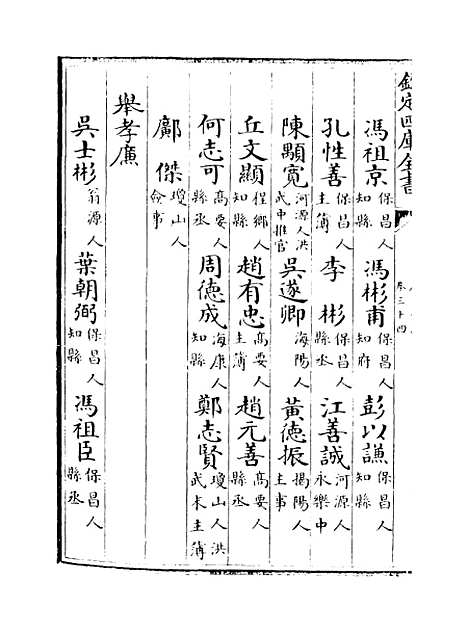 欽定四庫全書
卷三十四
馮祖京 保昌人知縣 馮彬甫 保昌人知府 彭以謙 保昌人知縣
孔性善 保昌人主簿 李彬 保昌人縣丞 江善誠 河源人永樂中
陳顯寬 河源人洪武中推官 吳遂卿 海陽人 黃德振 揭陽人主事
丘文顯 程鄉人知縣 趙有忠 高要人主簿 趙元善 高要人縣丞
何志可 高要人縣丞 周德成 海康人知縣 鄭志賢 瓊山人洪武末主簿
鄺傑 瓊山人僉事
舉孝廉
吳士彬 翁源人 葉朝弼 保昌人知縣 馮祖臣 保昌人縣丞